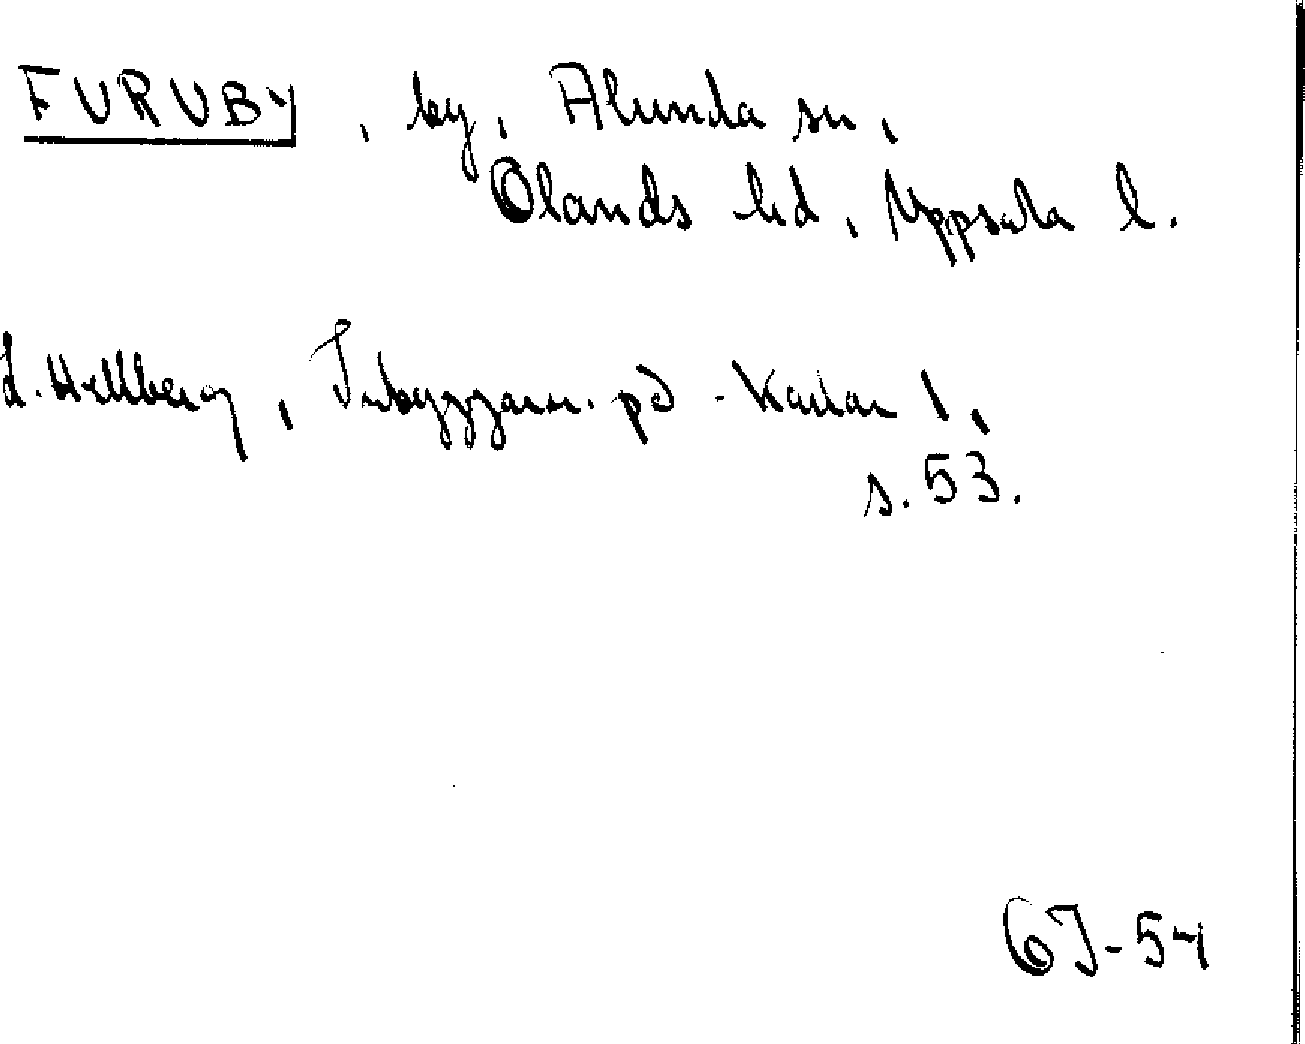 FURUBY, by, Alunda sn,
Olands hd, Uppsala l.
L. Hellberg, Inbyggarn. på -karlar 1,
s. 53.
GJ-54